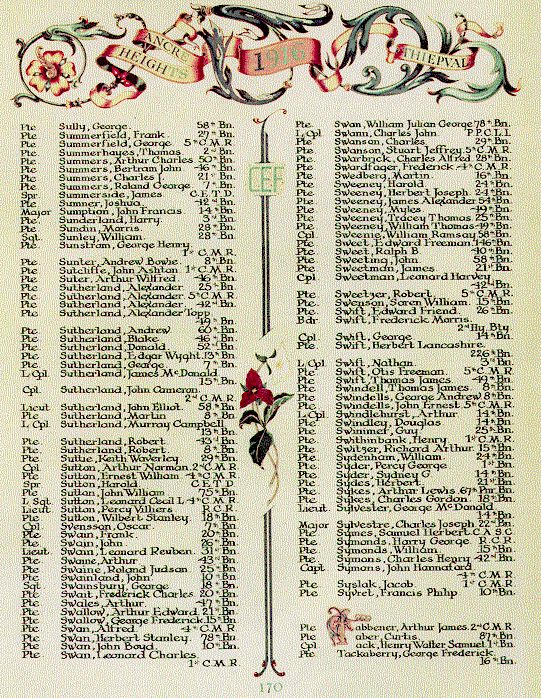 ANCRE HEIGHTS
1916
THIEPVAL
Pte Sully, George. 58th Bn.
Pte Summerfield, Frank. 27th Bn.
Pte Summerfield, George 5th C.M.R.
Pte Summerhayes, Thomas 2nd Bn.
Pte Summers, Arthur Charles 50th Bn.
Pte Summers, Bertram John 46th Bn.
Pte Summers, Charles I. 21st Bn.
Pte Summers, Roland George 7th Bn.
Spr Summerside, James C.E.T.D.
Pte Sumner, Joshua. 42nd Bn.
Major Sumption, John Francis 14th Bn.
Pte Sunderland, Harry. 3rd Bn.
Pte Sundin, Morris 28th Bn.
Sgt Sunley, William 28th Bn.
Pte Sunstrom, George Henry.
1st C.M.R.
Pte Sunter, Andrew Bowie. 8th Bn.
Pte Sutcliffe, John Ashton 1st C.M.R.
Pte Suter, Arthur Wilfred. 46th Bn.
Pte Sutherland, Alexander 25th Bn.
Pte Sutherland, Alexander 5th C.M.R.
Pte Sutherland, Alexander 42nd Bn.
Pte Sutherland, Alexander Topp
49th Bn.
Pte Sutherland, Andrew 60th Bn.
Pte Sutherland, Blake 46th Bn.
Pte Sutherland, Donald 52nd Bn.
Pte Sutherland, Edgar Wyght 13th Bn.
Pte Sutherland, George 7th Bn.
L Cpl Sutherland, James McDonald
15th Bn.
Cpl Sutherland, John Cameron.
2nd C.M.R.
Lieut Sutherland, John Elliot 58th Bn.
Pte Sutherland, Martin 8th Bn.
L Cpl Sutherland, Murray Campbell
13th Bn.
Pte Sutherland, Robert 43rd Bn.
Pte Sutherland, Robert. 8th Bn.
Pte Sutie, Keith Waverley. 29th Bn.
Cpl Sutton, Arthur Norman. 2nd C.M.R.
Pte Sutton, Ernest William 4th C.M.R.
Spr Sutton, Harold C.E.T.D.
Pte Sutton, John William 75th Bn.
L Sgt Sutton, Leonard Cecil L 4th C.M.R.
Lieut Sutton, Percy Villiers R.C.R.
Pte Sutton, Wilbert Stanley 18th Bn.
Cpl Svensson, Oscar. 7th Bn.
Pte Swain, Frank. 20th Bn.
Pte Swain, John 26th Bn.
Lieut Swain, Leonard Reuben. 31st Bn.
Pte Swaine, Arthur 43rd Bn.
Pte Swaine, Roland Judson 25th Bn.
Pte Swainland, John 10th Bn.
Sgt Swansbury, George 18th Bn.
Pte Swait, Frederick Charles 20th Bn.
Pte Swales, Arthur. 47th Bn.
Pte Swallow, Arthur Edward 21st Bn.
Pte Swallow, George Frederick 15th Bn.
Pte Swan, Alfred. 4th C.M.R.
Pte Swan, Herbert Stanley 78th Bn.
Pte Swan, John Boyd. 10th Bn.
Pte Swan, Leonard Charles.
1st C.M.R.
CEF
Pte Swan, William Julian George 78th Bn.
L Cpl Swann, Charles John P.P.C.L.I.
Pte Swanson, Charles 29th Bn.
Pte Swanson, Stuart Jeffrey. 5th C.M.R.
Pte Swarbrick, Charles Alfred 28th Bn.
Pte Swardfager, Frederick 4th C.M.R.
Pte Swedberg, Martin 16th Bn.
Pte Sweeney, Harold 24th Bn.
Pte Sweeney, Herbert Joseph 24th Bn.
Pte Sweeney, James Alexander 54th Bn.
Pte Sweeney, Myles 49th Bn.
Pte Sweeney, Tracey Thomas 25th Bn.
Pte Sweeney, William Thomas 49th Bn.
Cpl Sweenie, William Ramsay 58th Bn.
Pte Sweet, Edward Freeman 146th Bn.
Pte Sweet, Ralph B 40th Bn.
Pte Sweeting, John 58th Bn.
Pte Sweetman, James 21st Bn.
Cpl Sweetman, Leonard Harvey
42nd Bn.
Pte Sweetzer, Robert. 5th C.M.R.
Pte Swenson, Soren William 15th Bn.
Pte Swift, Edward Friend. 26th Bn.
Bdr Swift, Frederick Morris.
2nd Hy. Bty.
Cpl Swift, George 14th Bn.
Pte Swift, Herbert Lancashire.
226th Bn.
L Cpl Swift, Nathan 3rd Bn.
Pte Swift, Otis Freeman. 5th C.M.R.
Pte Swift, Thomas James 49th Bn.
Pte Swindell, Thomas James 8th Bn.
Pte Swindells, George Andrew 8th Bn.
Pte Swindells, John Ernest 5th C.M.R.
L Cpl Swindlehurst, Arthur 14th Bn.
Pte Swindley, Douglas 14th Bn.
Pte Swinimer, Guy 25th Bn.
Pte Swithinbank, Henry 1st C.M.R.
Pte Switzer, Richard Arthur 15th Bn.
Pte Sydenham, William 24th Bn.
Pte Syder, Percy George 1st Bn.
Pte Syder, Sydney G. 14th Bn.
Pte Sydes, Herbert. 21st Bn.
Pte Sykes, Arthur Lewis 67th Bn.
Pte Sykes, Charles Gordon 18th Bn.
Lieut Sylvester, George McDonald
14th Bn.
Major Sylvestre, Charles Joseph 22nd Bn.
Pte Symes, Samuel Herbert C.A.S.C.
Pte Symonds, Harry George R.C.R.
Pte Symonds, William 15th Bn.
Pte Symons, Charles Henry 42nd Bn.
Capt Symons, John Hannaford
4th C.M.R.
Pte Syslak, Jacob. 1st C.M.R.
Pte Syvret, Francis Philip 10th Bn.
Pte Tabbener, Arthur James 2nd C.M.R.
Pte Taber, Curtis. 87th Bn.
Cpl Tack, Henry Walter Samuel 1st Bn.
Pte Tackaberry, George Frederick.
16th Bn.
170